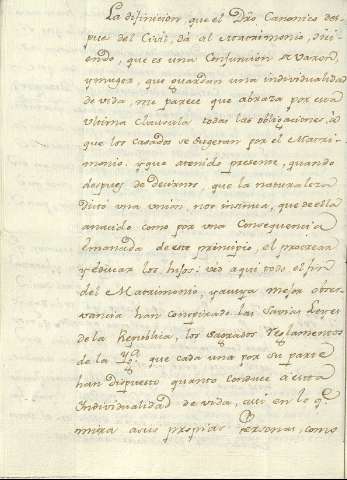 La difinicion, que el Dro. Canonico des-
pues del Civil, dá al Matrimonio, dici-
endo, que es una Conjuncion de Varon,
y muger, que guardan una individualidad
de vida, me parece que abraza por esta
ultima Clausula todas las obligaciones, á
que los casados se sugetan por el Matri-
monio, y que atenido presente, quando
despues de decirnos, que la naturaleza
dictó una union, nos insinua, que de ella
á nacido como por una Consequencia
emanada de este principio, el procrear
y educar los hijos: ved aqui todo el fin
del Matrimonio, y a cuya mejor obser-
vancia han conspirado las Savias Leyes
de la Republica, los Sagrados Reglamentos
de la Yga. que cada una por su parte
han dispuesto quanto conduce á esta
Individualidad de vida, assi en lo q.e
mira a sus propias Personas, como